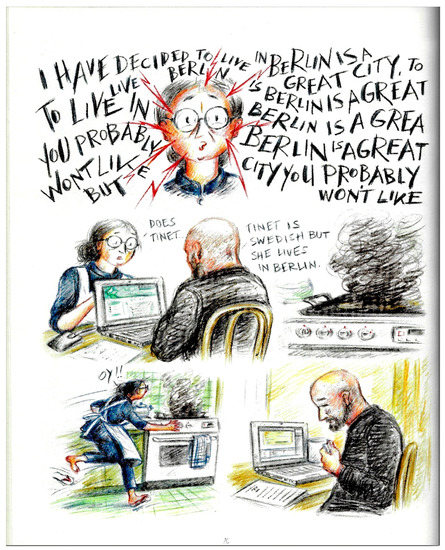 I HAVE DECIDED TO LIVE
LIVE BERLIN
TO LIVE IN
YOU PROBABLY
WONT LIKE
BUT
IN BERLIN IS A
GREAT CITY, TO
IS BERLIN IS A GREAT
BERLIN IS A GREA
BERLIN IS A GREAT
CITY YOU PROBABLY
WON'T LIKE
DOES
TINET
TINET IS
SWEDISH BUT
SHE LIVES
IN BERLIN.
OY!!